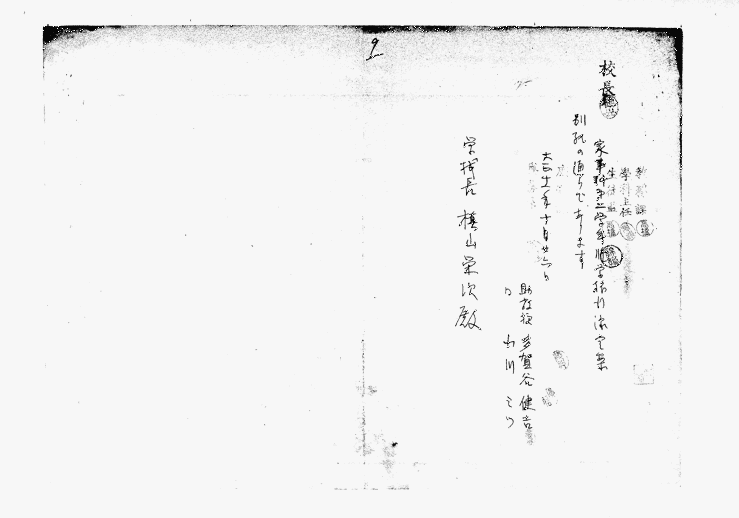 9
校長
教務課
學科主任
生徒監
家事科第二学年修学旅行決定案
別紙の通りであります
大正十一年十月廿六日
助教授 多賀谷健吉
〃 出川ミツ
学校長 槇山栄次殿